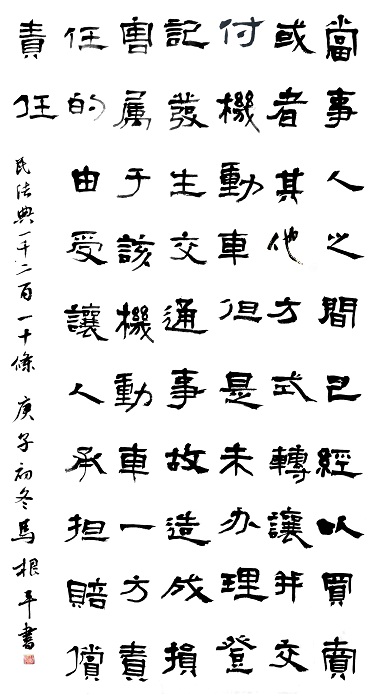 當事人之間已經以買賣
或者其他方式轉讓并交
付機動車但是未办理登
記發生交通事故造成損
害属于該機動車一方責
任的由受讓人承担賠償
責任
民法典一千二百一十條 庚子初冬馬根平書